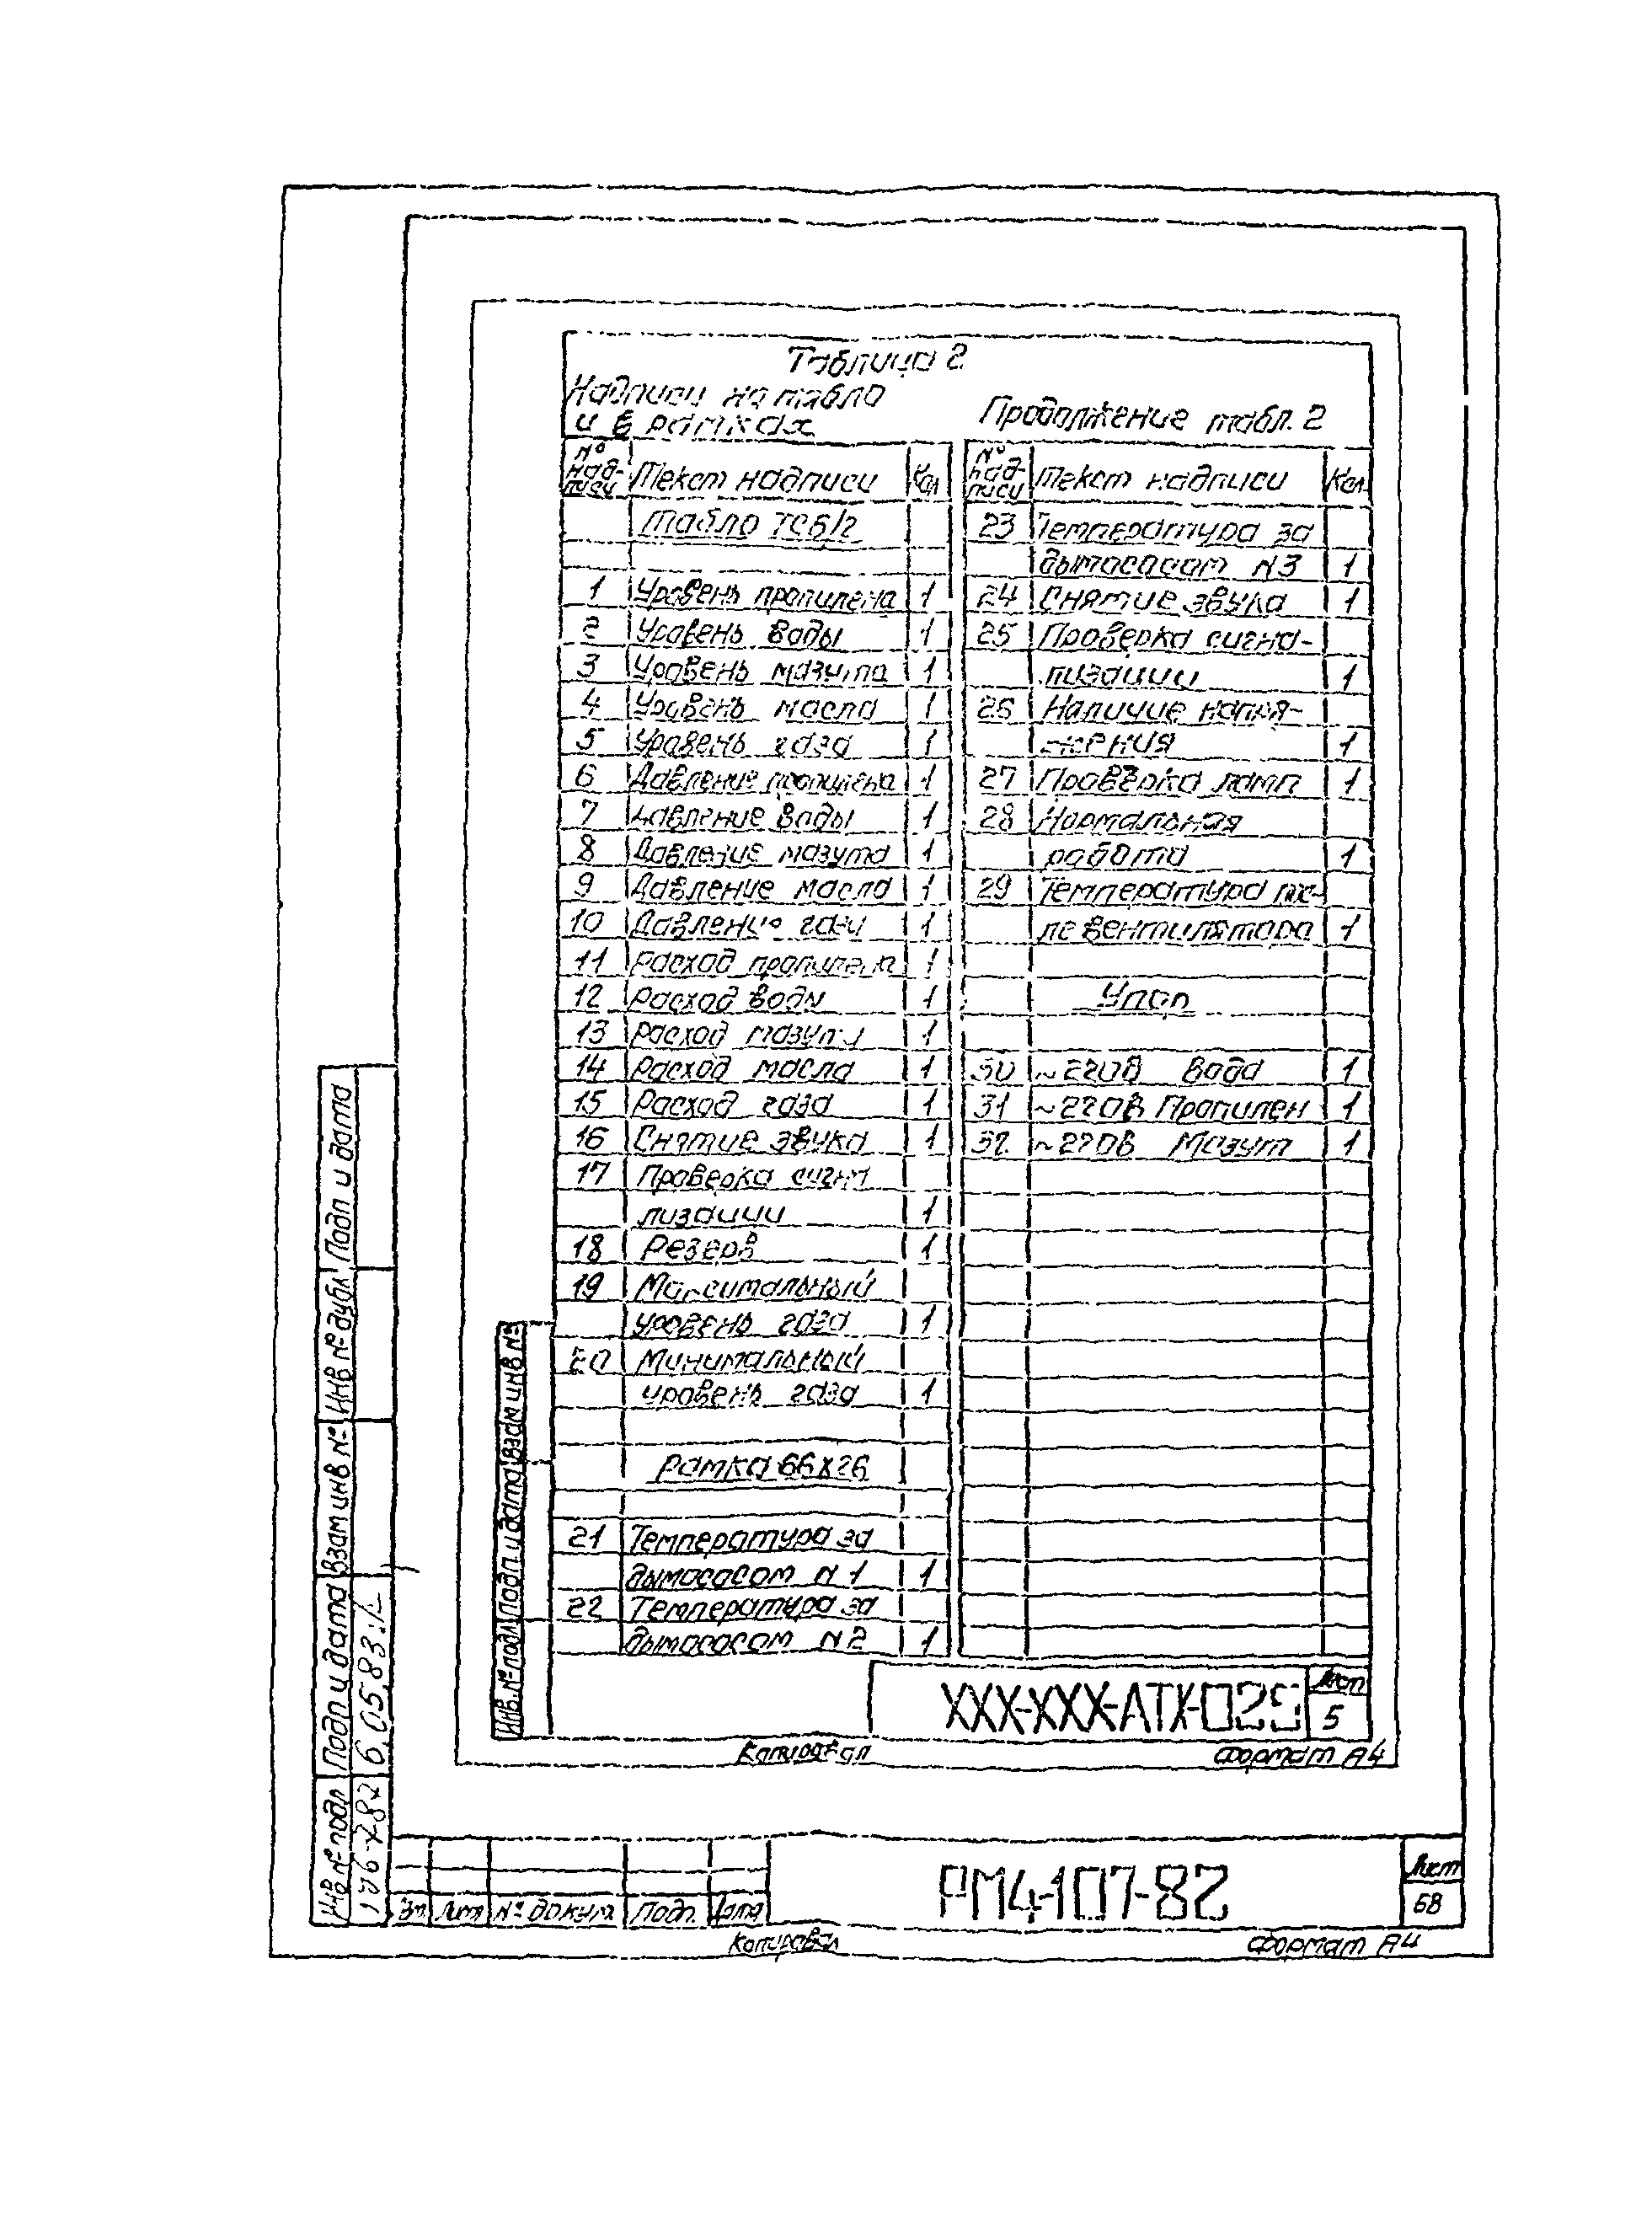 Таблица 2
Надписи на табло
и в рамках
№ надписи Текст надписи Кол
Табло ТСБ/2
1 Уровень пропилена 1
2 Уровень воды 1
3 Уровень мазута 1
4 Уровень масла 1
5 Уровень газа 1
6 Давление пропилена 1
7 Давление воды 1
8 Давление мазута 1
9 Давление масла 1
10 Давление газа 1
11 Расход пропилена 1
12 Расход воды 1
13 Расход мазута 1
14 Расход масла 1
15 Расход газа 1
16 Снятие звука 1
17 Проверка сигна
лизации 1
18 Резерв 1
19 Максимальный
уровень газа 1
20 Минимальный
уровень газа 1
Рамка 66х26
21 Температура за
дымососом N1 1
22 Температура за
дымососом N2 1
Продолжение табл. 2
№ надписи Текст надписи Кол.
23 Температура за
дымососом N3 1
24 Снятие звука 1
25 Проверка сигна-
лизации 1
26 Наличие напря-
жения 1
27 Проверка ламп 1
28 Нормальная
работа 1
29 Температура пос-
ле вентилятора 1
Упор
30 ~220В Вода 1
31 ~220В Пропилен 1
32 ~220В Мазут 1
Взам инв №
Подп и дата
Инв. № подл
XXX-XXX-АТХ-029
Лист
5
Копировал Формат А4
Подп и дата
Инв № дубл
Взам инв №
Подп и дата 6.05.83
Инв № подл
Изм Лист № докум Подп. Дата
РМ4-107-82
Лист
68
Копировал Формат А4